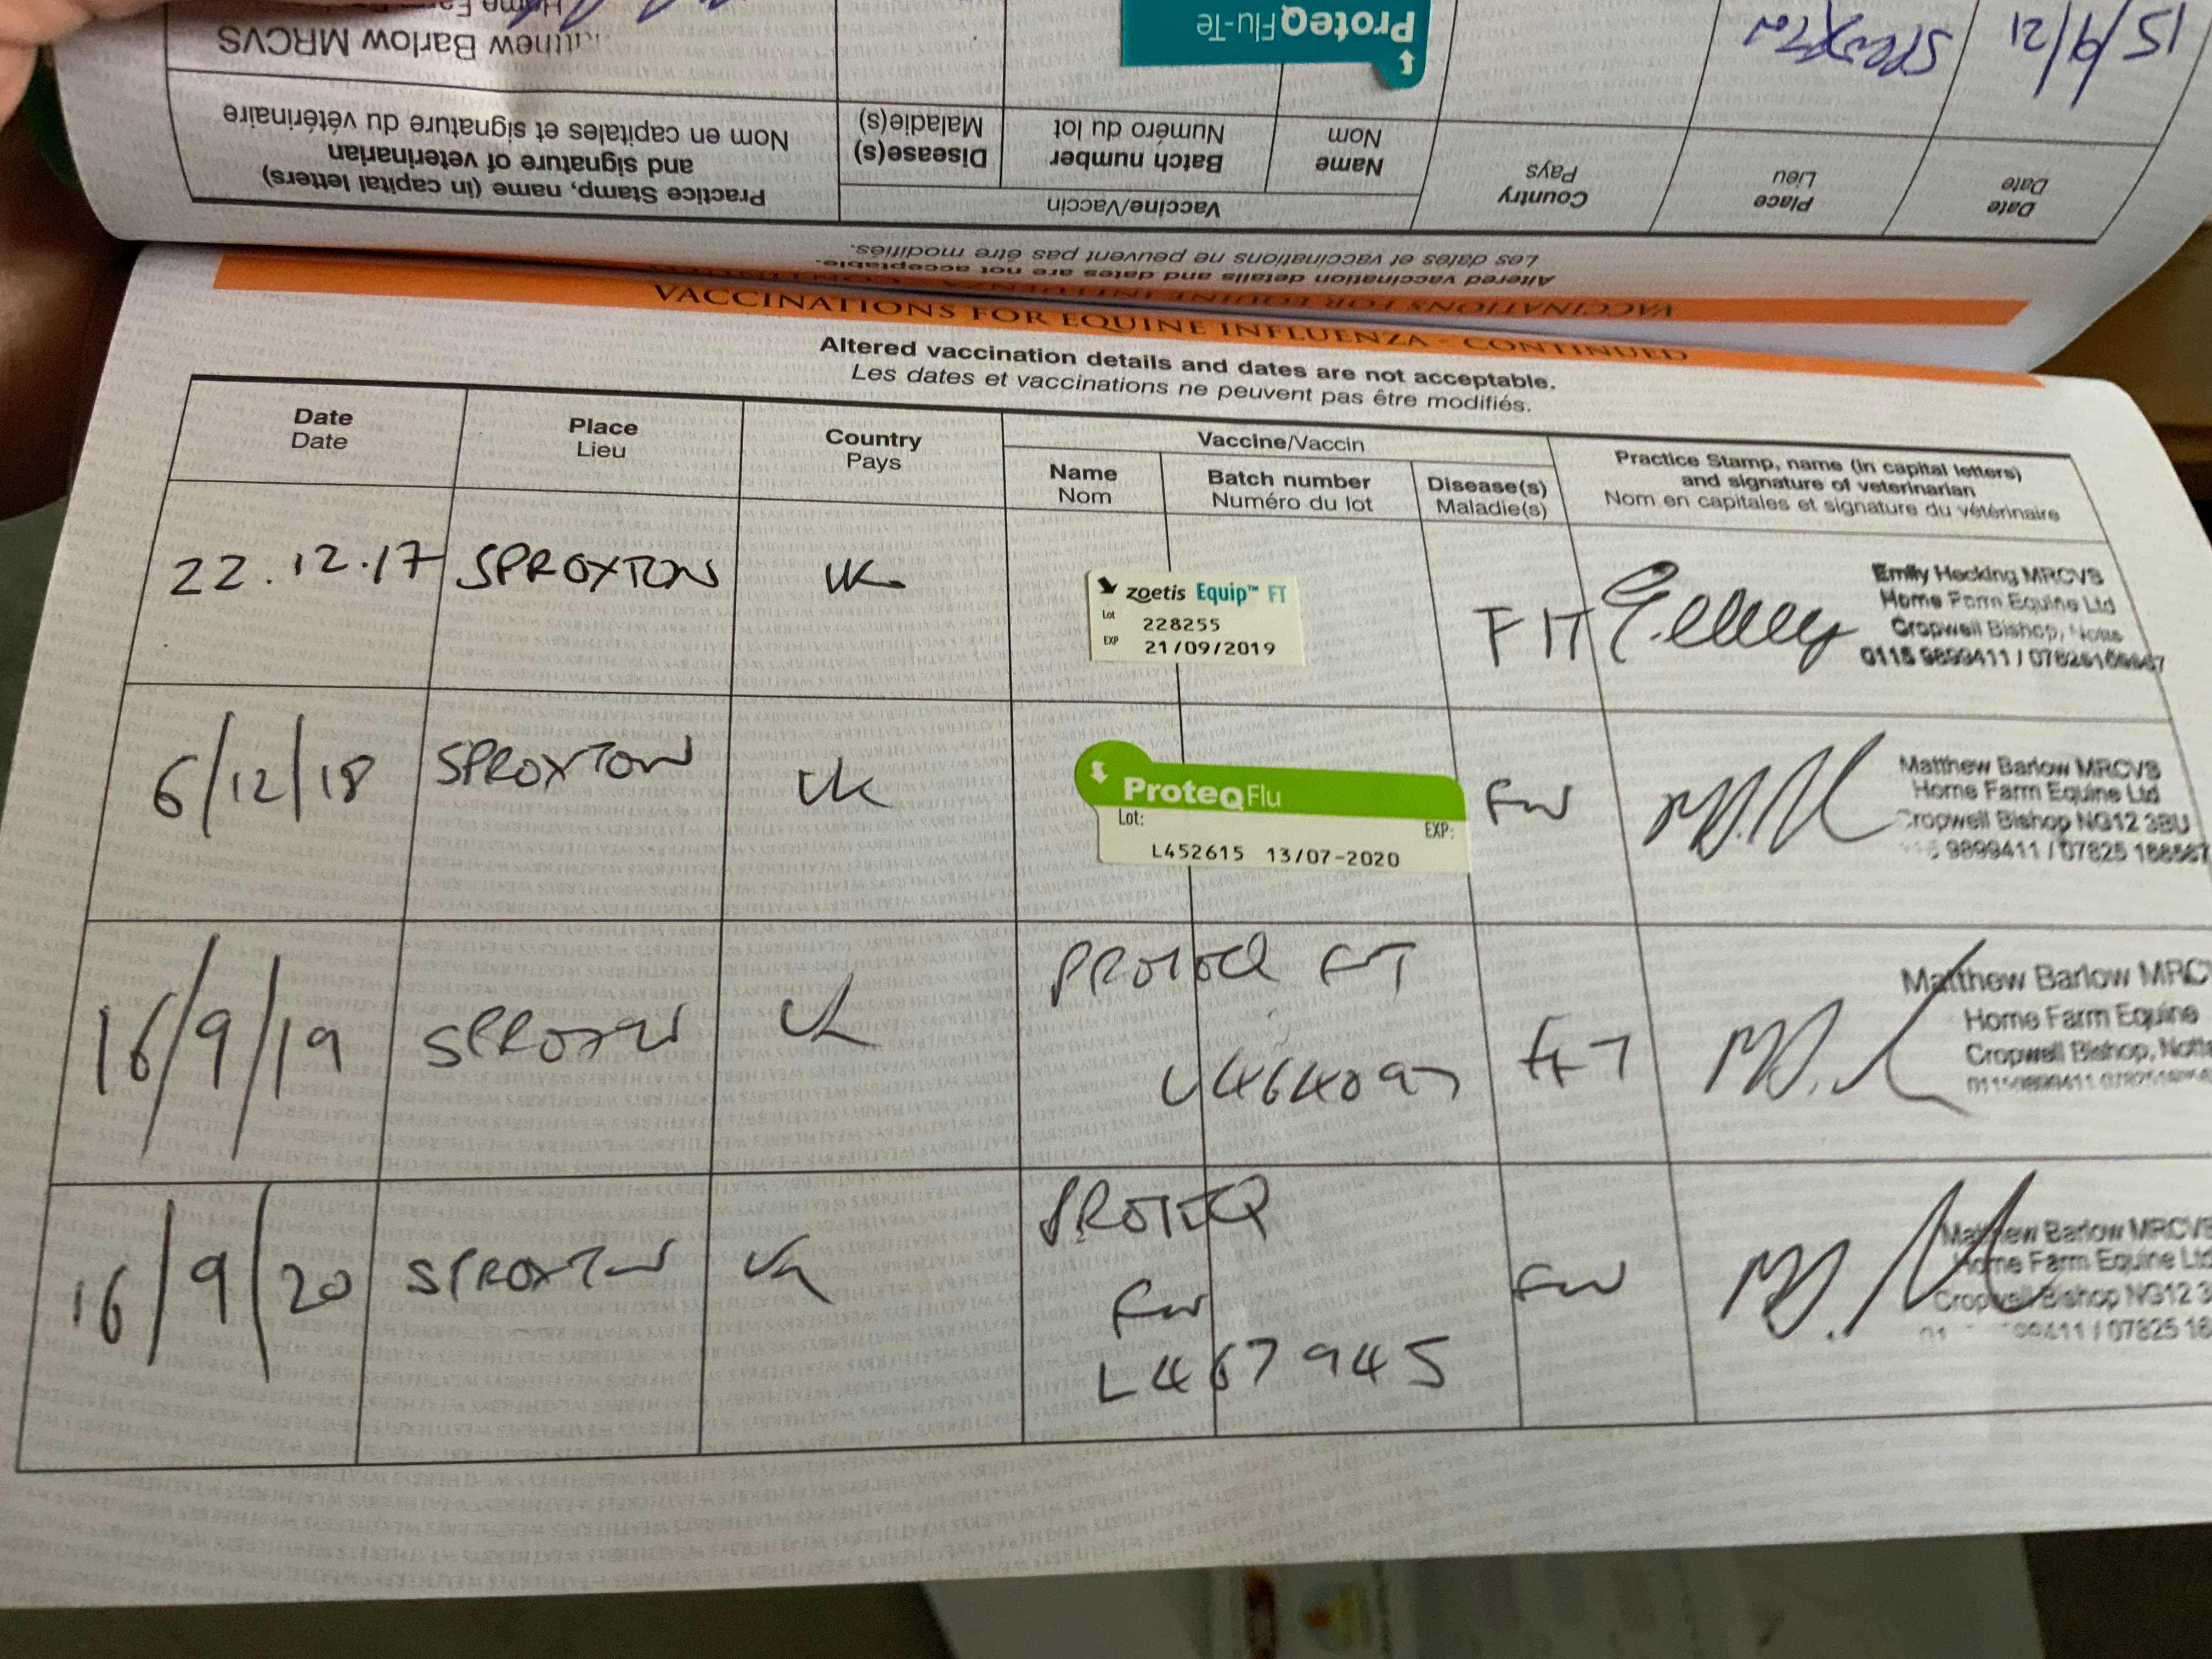 15/9/21
Sproxton
ProteqFlu-Te
Matthew Barlow MRCVS
Date
Date
Place
Lieu
Country
Pays
Vaccine/Vaccin
Name
Nom
Batch number
Numéro du lot
Disease(s)
Maladie(s)
Practice Stamp, name (in capital letters)
and signature of veterinarian
Nom en capitales et signature du vétérinaire
Altered vaccination details and dates are not acceptable.
Les dates et vaccinations ne peuvent pas être modifiés.
VACCINATIONS FOR EQUINE INFLUENZA - CONTINUED
VACCINATIONS FOR EQUINE INFLUENZA - CONTINUED
Altered vaccination details and dates are not acceptable.
Les dates et vaccinations ne peuvent pas être modifiés.
Date
Date
Place
Lieu
Country
Pays
Vaccine/Vaccin
Name
Nom
Batch number
Numéro du lot
Disease(s)
Maladie(s)
Practice Stamp, name (in capital letters)
and signature of veterinarian
Nom en capitales et signature du vétérinaire
22.12.17 SPROXTON UK
zoetis Equip™ FT
Lot 228255
EXP 21/09/2019
F/T
Emily Hocking MRCVS
Home Farm Equine Ltd
Cropwell Bishop, Notts
0115 9899411 /
6/12/18 SPROXTON UK
ProteqFlu
Lot: EXP:
L452615 13/07-2020
Flu
Matthew Barlow MRCVS
Home Farm Equine Ltd
Cropwell Bishop NG12 3BU
9899411 / 07825
16/9/19 SPROXTON UK
PROTEQ FT
L464097
F+T
Matthew Barlow MRCV
Home Farm Equine
Cropwell Bishop, Notts
16/9/20 SPROXTON UK
PROTEQ
Flu
L467945
Flu
Matthew Barlow MRCVS
Home Farm Equine Ltd
Cropwell Bishop NG12 3
/ 07825